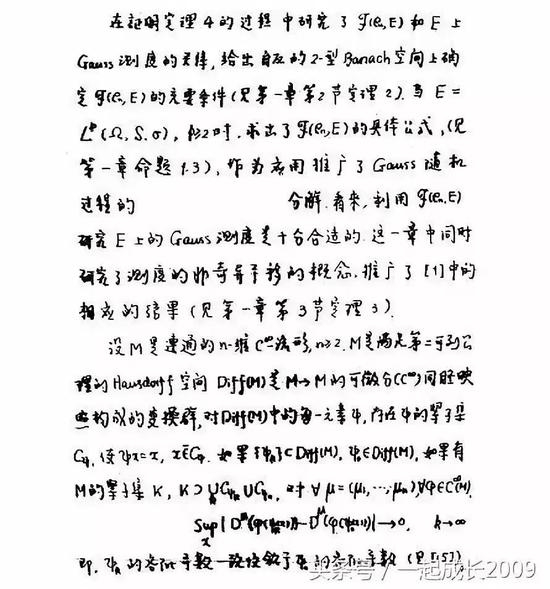 在証明定理4的过程中研究了𝒥(ℓ₂,E)和E上
Gauss测度的关係,给出自反的2-型Banach空间上确
定𝒥(ℓ₂,E)的充要条件(见第一章第2节定理2).当E=
Lᵖ(Ω,S,σ), 时,求出了𝒥(ℓ₂,E)的具体公式,(见
第一章命题1.3),作为应用推广了Gauss随机
过程的 分解.看来,利用𝒥(ℓ₂,E)
研究E上的Gauss测度是十分合适的.这一章中同时
研究了测度的非奇异平移的概念,推广了[1]中的
相应的结果(见第一章第3节定理3).
设M是連通的n-维C^∞流形,n≥2.M是满足第二可列公
理的Hausdorff空间 Diff(M)是M→M的可微分(C^∞)同胚映
构成的变换群,对Diff(M)中的每一元素ψ,存在ψ的紧子集
C_ψ,使ψx=x, x∉C_ψ.如果{ψ_n}⊂Diff(M), ψ₀∈Diff(M),如果有
M的紧子集K, K⊃ ,对∀μ=(μ₁,…,μ_n),∀φ∈C^∞(M),
Sup|D^μ(φ(ψ_n(x)))-D^μ(φ(ψ₀(x)))|→0,
x
即,ψ_n的各阶导数一致 的各阶导数(见
头条号 / 一起成长2009